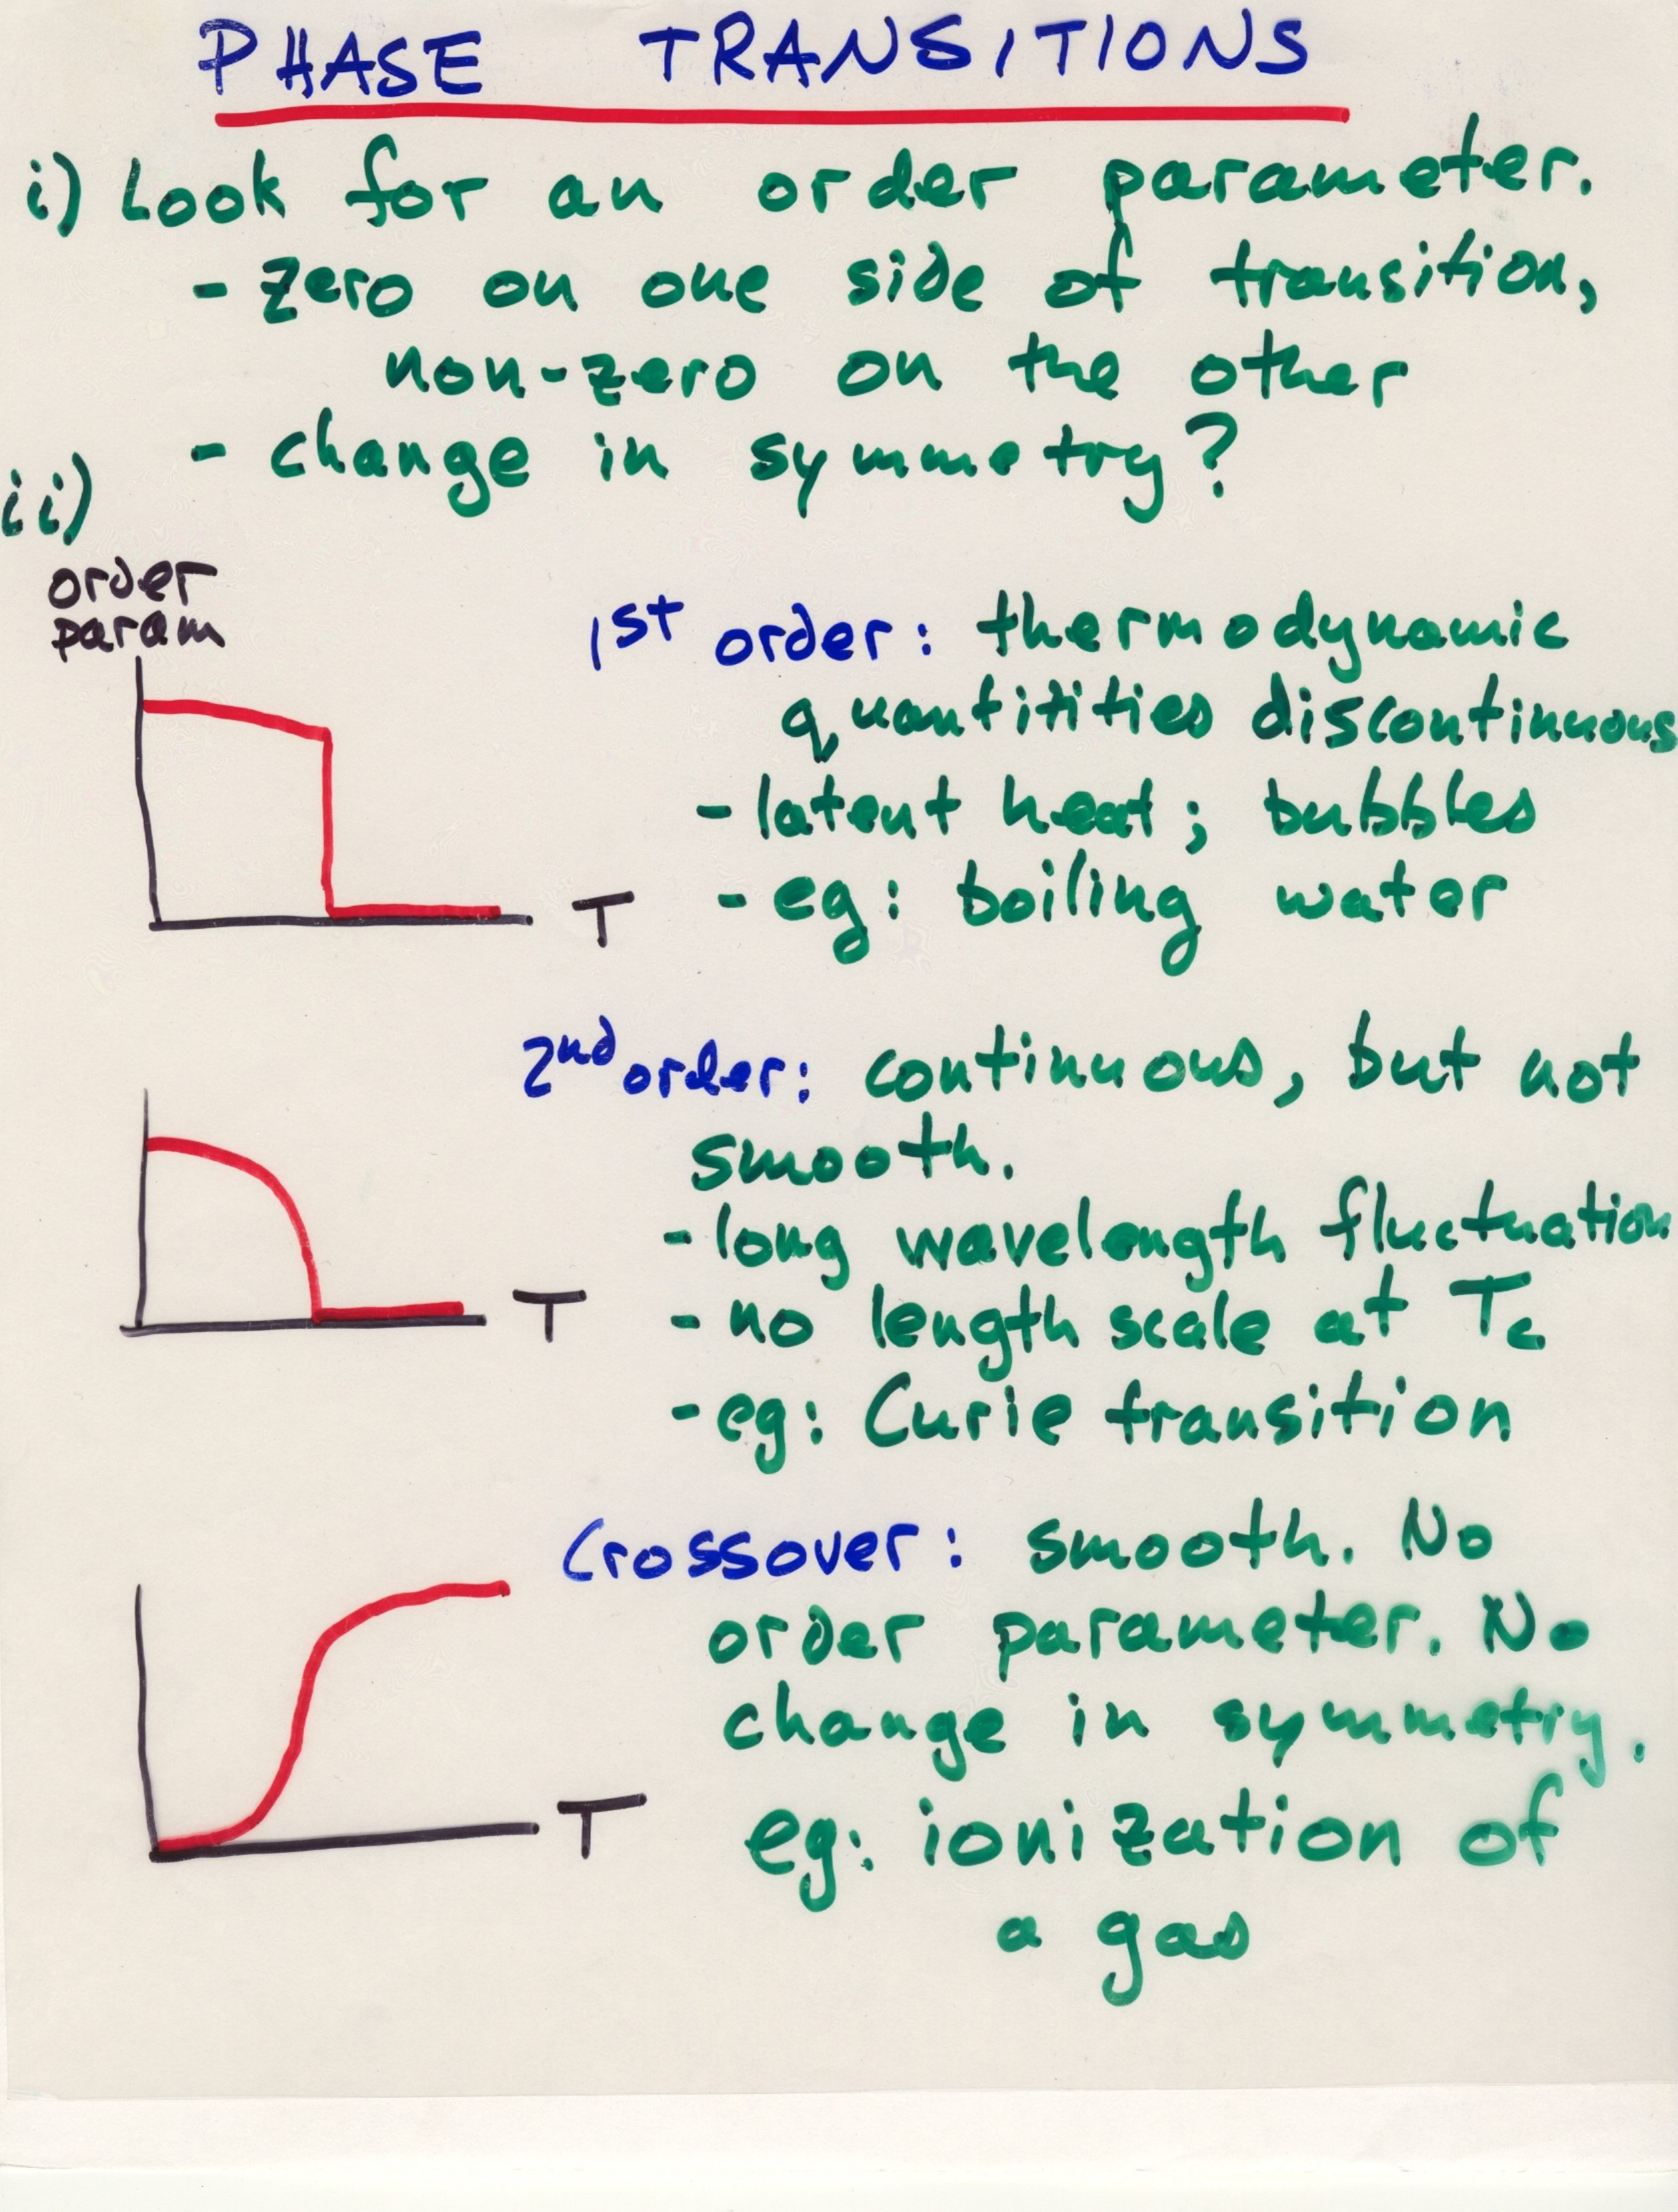 PHASE TRANSITIONS
i) Look for an order parameter.
- zero on one side of transition,
non-zero on the other
- change in symmetry?
ii)
order
param
1st order: thermodynamic
quantitities discontinuous
- latent heat; bubbles
T
- eg: boiling water
2nd order: continuous, but not
smooth.
- long wavelength fluctuation
T
- no length scale at Tc
- eg: Curie transition
Crossover: smooth. No
order parameter. No
change in symmetry.
T
eg: ionization of
a gas